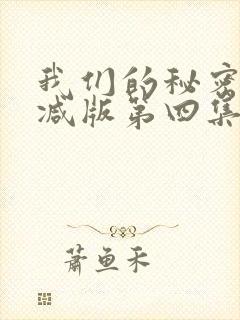 我们的秘密
减版第四集
萧鱼禾